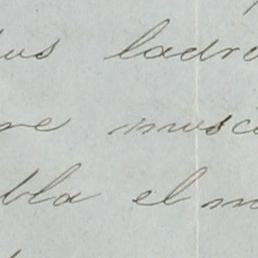 us ladr
re musc
bla el m